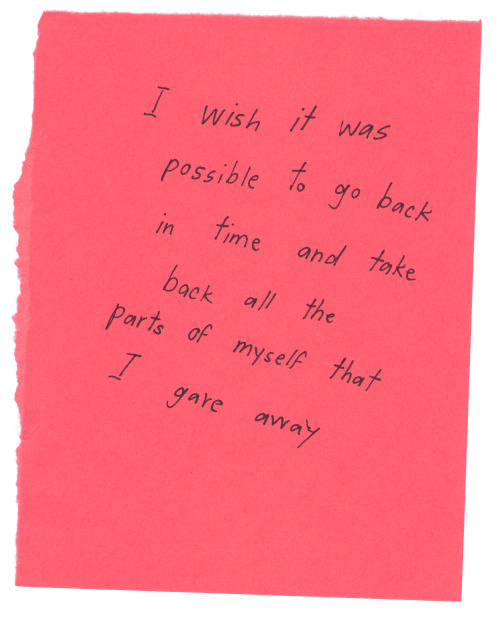 I wish it was
possible to go back
in time and take
back all the
parts of myself that
I gave away